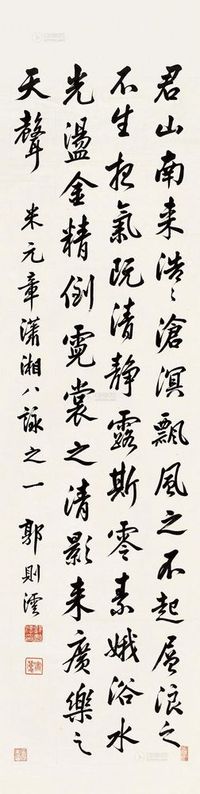 君山南来浩〻滄溟飄風之不起層浪之
不生夜氣既清静露斯零素娥浴水
光盪金精倒霓裳之清影来廣樂之
天聲
米元章瀟湘八詠之一 郭則澐